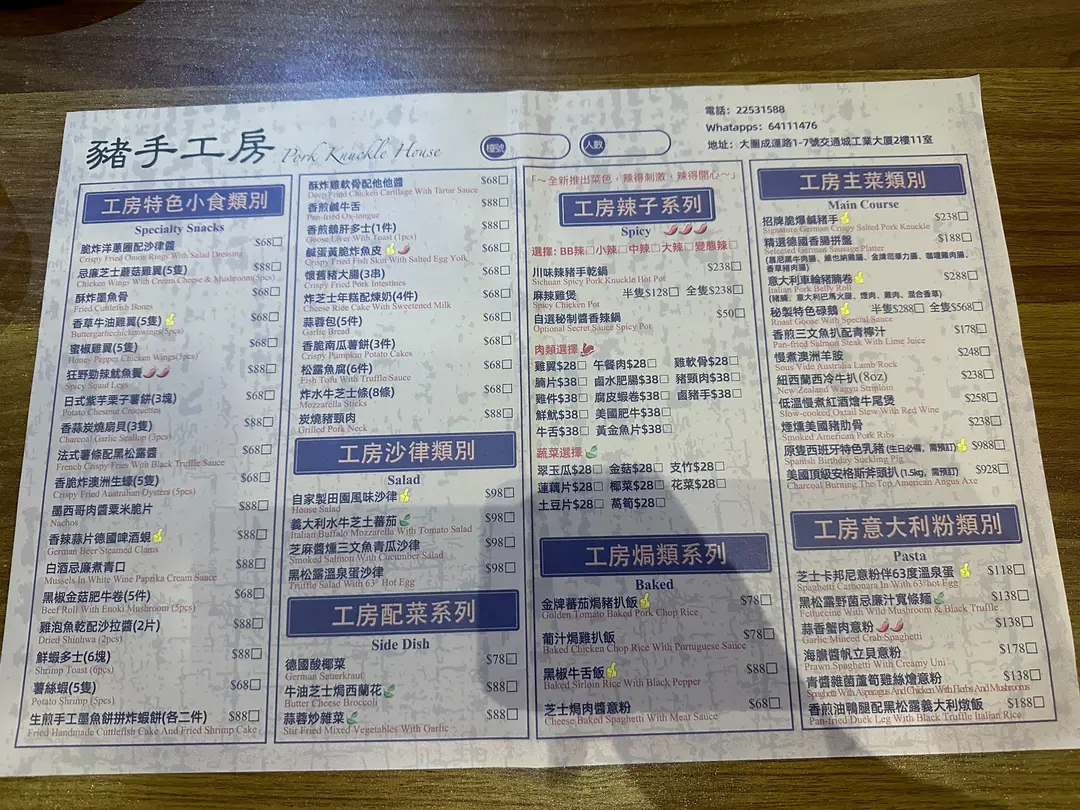 豬手工房 Pork Knuckle House
檯號
人數
電話：22531588
Whatapps：64111476
地址：大圍成運路1-7號交通城工業大厦2樓11室
工房特色小食類別
Specialty Snacks
脆炸洋蔥圈配沙律醬 $68
Crispy Fried Onion Rings With Salad Dressing
忌廉芝士蘑菇雞翼(5隻) $88
Chicken Wings With Cream Cheese & Mushroom(5pcs)
酥炸墨魚骨 $68
Fried Cuttlefish Bones
香草牛油雞翼(5隻) $68
Buttergarlicchickenwings(5pcs)
蜜椒雞翼(5隻) $68
Honey Pepper Chicken Wings(5pcs)
狂野勁辣魷魚鬚 $88
Spicy Squid Legs
日式紫芋栗子薯餅(3塊) $68
Potato Chestnut Croquettes
香蒜炭燒扇貝(3隻) $88
Charcoal Garlic Scallop (3pcs)
法式薯條配黑松露醬 $68
French Crispy Fries With Black Truffle Sauce
香脆炸澳洲生蠔(5隻) $88
Crispy Fried Australian Oysters (5pcs)
墨西哥肉醬粟米脆片 $88
Nachos
香辣蒜片德國啤酒蜆 $88
German Beer Steamed Clams
白酒忌廉煮青口 $88
Mussels In White Wine Paprika Cream Sauce
黑椒金菇肥牛卷(5件) $68
Beef Roll With Enoki Mushroom (5pcs)
雞泡魚乾配沙拉醬(2片) $88
Dried Shinhwa (2pcs)
鮮蝦多士(6塊) $88
Shrimp Toast (6pcs)
薯絲蝦(5隻) $68
Potato Shrimp (5pcs)
生煎手工墨魚餅拼炸蝦餅(各二件) $88
Fried Handmade Cuttlefish Cake And Fried Shrimp Cake
酥炸雞軟骨配他他醬 $68
Deep Fried Chicken Cartilage With Tartar Sauce
香煎鹹牛舌 $88
Pan-fried Ox-tongue
香煎鵝肝多士(1件) $88
Goose Liver With Toast (1pcs)
鹹蛋黃脆炸魚皮 $68
Crispy Fried Fish Skin With Salted Egg Yolk
懷舊豬大腸(3串) $68
Crispy Fried Pork Intestines
炸芝士年糕配煉奶(4件) $68
Cheese Rice Cake With Sweetened Milk
蒜蓉包(5件) $68
Garlic Bread
香脆南瓜薯餅(3件) $68
Crispy Pumpkin Potato Cakes
松露魚腐(6件) $68
Fish Tofu With Truffle Sauce
炸水牛芝士條(8條) $68
Mozzarella Sticks
炭燒豬頸肉 $88
Grilled Pork Neck
工房沙律類別
Salad
自家製田園風味沙律 $98
House Salad
義大利水牛芝士蕃茄 $98
Italian Buffalo Mozzarella With Tomato Salad
芝麻醬燻三文魚青瓜沙律 $98
Smoked Salmon With Cucumber Salad
黑松露溫泉蛋沙律 $98
Truffle Salad With 63° Hot Egg
工房配菜系列
Side Dish
德國酸椰菜 $78
German Sauerkraut
牛油芝士焗西蘭花 $88
Butter Cheese Broccoli
蒜蓉炒雜菜 $88
Stir Fried Mixed Vegetables With Garlic
「～全新推出菜色，辣得刺激，辣得開心～」
工房辣子系列
Spicy
選擇：BB辣 小辣 中辣 大辣 變態辣
川味辣豬手乾鍋 $238
Sichuan Spicy Pork Knuckle Hot Pot
麻辣雞煲 半隻$128 全隻$238
Spicy Chicken Pot
自選秘制醬香辣鍋 $50
Optional Secret Sauce Spicy Pot
肉類選擇
雞翼$28 午餐肉$28 雞軟骨$28
腩片$38 鹵水肥腸$38 豬頸肉$38
雞件$38 腐皮蝦卷$38 鹵豬手$38
鮮魷$38 美國肥牛$38
牛舌$38 黃金魚片$38
蔬菜選擇
翠玉瓜$28 金菇$28 支竹$28
蓮藕片$28 椰菜$28 花菜$28
土豆片$28 萵筍$28
工房焗類系列
Baked
金牌蕃茄焗豬扒飯 $78
Golden Tomato Baked Pork Chop Rice
葡汁焗雞扒飯 $78
Baked Chicken Chop Rice With Portuguese Sauce
黑椒牛舌飯 $88
Baked Sirloin Rice With Black Pepper
芝士焗肉醬意粉 $68
Cheese Baked Spaghetti With Meat Sauce
工房主菜類別
Main Course
招牌脆爆鹹豬手 $238
Signature German Crispy Salted Pork Knuckle
精選德國香腸拼盤 $188
Selected German Sausage Platter
(慕尼黑牛肉腸、維也納雞腸、金牌司華力腸、咖喱雞肉腸、
香草豬肉腸)
意大利車輪豬腩卷 $288
Italian Pork Belly Roll
(豬腩、意大利巴馬火腿、煙肉、雞肉、混合香草)
秘製特色碌鵝 半隻$288 全隻$568
Roast Goose With Special Sauce
香煎三文魚扒配青檸汁 $178
Pan-fried Salmon Steak With Lime Juice
慢煮澳洲羊腩 $248
Sous Vide Australia Lamb Rack
紐西蘭西冷牛扒(8oz) $238
New Zealand Wagyu Striploin
低溫慢煮紅酒燴牛尾煲 $258
Slow-cooked Oxtail Stew With Red Wine
煙燻美國豬肋骨 $238
Smoked American Pork Ribs
原隻西班牙特色乳豬(生日必備，需預訂) $988
Spanish Birthday Suckling Pig
美國頂級安格斯斧頭扒(1.5kg，需預訂) $928
Charcoal Burning The Top American Angus Axe
工房意大利粉類別
Pasta
芝士卡邦尼意粉伴63度溫泉蛋 $118
Spaghetti Carbonara In With 63°hot Egg
黑松露野菌忌廉汁寬條麵 $138
Fettuccine With Wild Mushroom & Black Truffle
蒜香蟹肉意粉 $138
Garlic Minced Crab Spaghetti
海膽醬帆立貝意粉 $178
Prawn Spaghetti With Creamy Uni
青醬雜菌蘆筍雞絲燴意粉 $138
Spaghetti With Asparagus And Chicken With Herbs And Mushrooms
香煎油鴨腿配黑松露義大利燉飯 $188
Pan-fried Duck Leg With Black Truffle Italian Rice